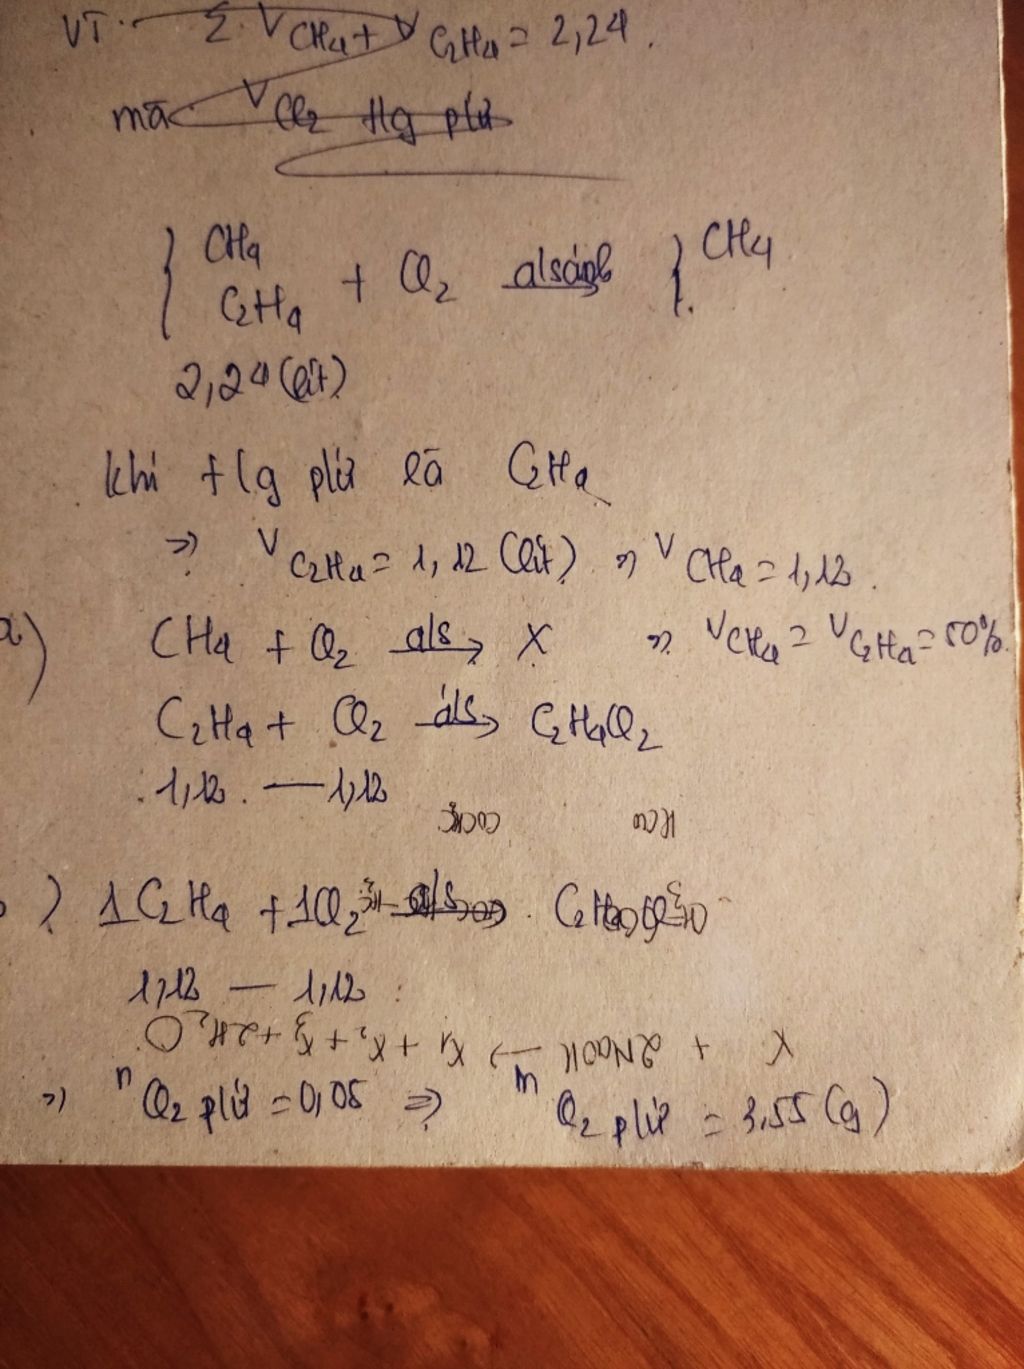 VT. Σ V CH4 + V C2H4 = 2,24.
mà V Cl2 pứ
{ CH4 C2H4 + Cl2 → { CH4
2,24 (lít)
khí pứ là C2H4
=> V C2H4 = 1,12 (lít) => V CH4 = 1,12.
a) CH4 + Cl2 als→ X => V CH4 = V C2H4 = 50%
C2H4 + Cl2 als→ C2H4Cl2
1,12. — 1,12
) 1 C2H4 + 1Cl2 als→
1,12 — 1,12
X + 2NaOH → X1 + X2 + X3 + 2H2O
=> n Cl2 pứ = 0,05 => m Cl2 pứ = 3,55 (g)